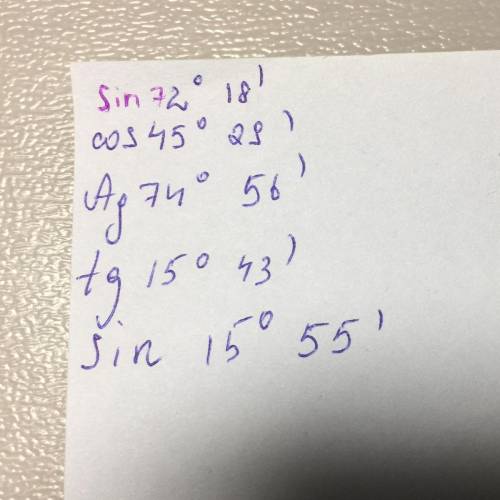 sin 72° 18'
cos 45° 29'
tg 74° 56'
tg 15° 43'
sin 15° 55'